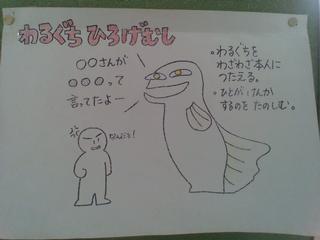 わるぐち ひろげむし
○○さんが
○○○って
言ってたよー
・わるぐちを
わざわざ本人に
つたえる。
・ひとがけんか
するのを たのしむ。
なんだと!